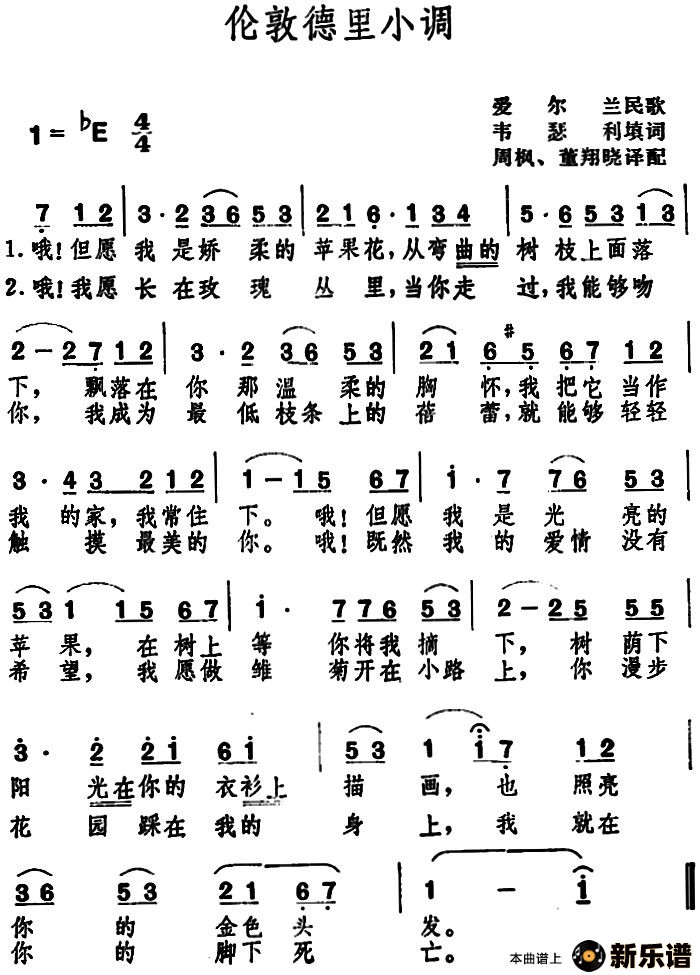 伦敦德里小调
爱尔兰民歌
1=♭E 4/4
韦瑟利填词
周枫、董翔晓译配
7 12 3·2 36 53 216·134 5·65313
1.哦!但愿我是娇柔的苹果花,从弯曲的树枝上面落
2.哦!我愿长在玫瑰丛里,当你走过,我能够吻
2-2712 3·2 36 53 21 6#5 67 12
下,飘落在你那温柔的胸怀,我把它当作
你,我成为最低枝条上的蓓蕾,就能够轻轻
3·43 2 12 1-15 67 1·7 76 53
我的家,我常住下。哦!但愿我是光亮的
触摸最美的你。哦!既然我的爱情没有
53 1 15 67 1· 7776 53 2-25 55
苹果,在树上等你将我摘下,树荫下
希望,我愿做雏菊开在小路上,你漫步
3·2 21 61 53 1 17 12
阳光在你的衣衫上描画,也照亮
花园踩在我的身上,我就在
36 53 21 67 1 - 1
你的金色头发。
你的脚下死亡。
本曲谱上 新乐谱